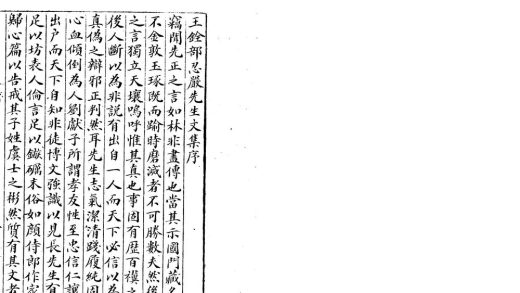 王銓部忍嚴先生文集序
竊聞先正之言如林非盡傳也當其示國門藏名
不金敦玉琢旣而踰時磨滅者不可勝數夫然後
之言獨立天壤嗚呼惟其真也事固有歷百禩之
後人斷以為非說有出自一人而天下必信以為
真僞之辯邪正判然耳先生志氣潔清踐履純固
心血傾倒為人劉獻子所謂孝友性至忠信仁讓
出戶而天下自知非徒博文強識以見長先生有
足以坊表人倫言足以鍼礪末俗如顏侍郎作家
歸心篇以告戒其子姓虞士之彬然質有其文者